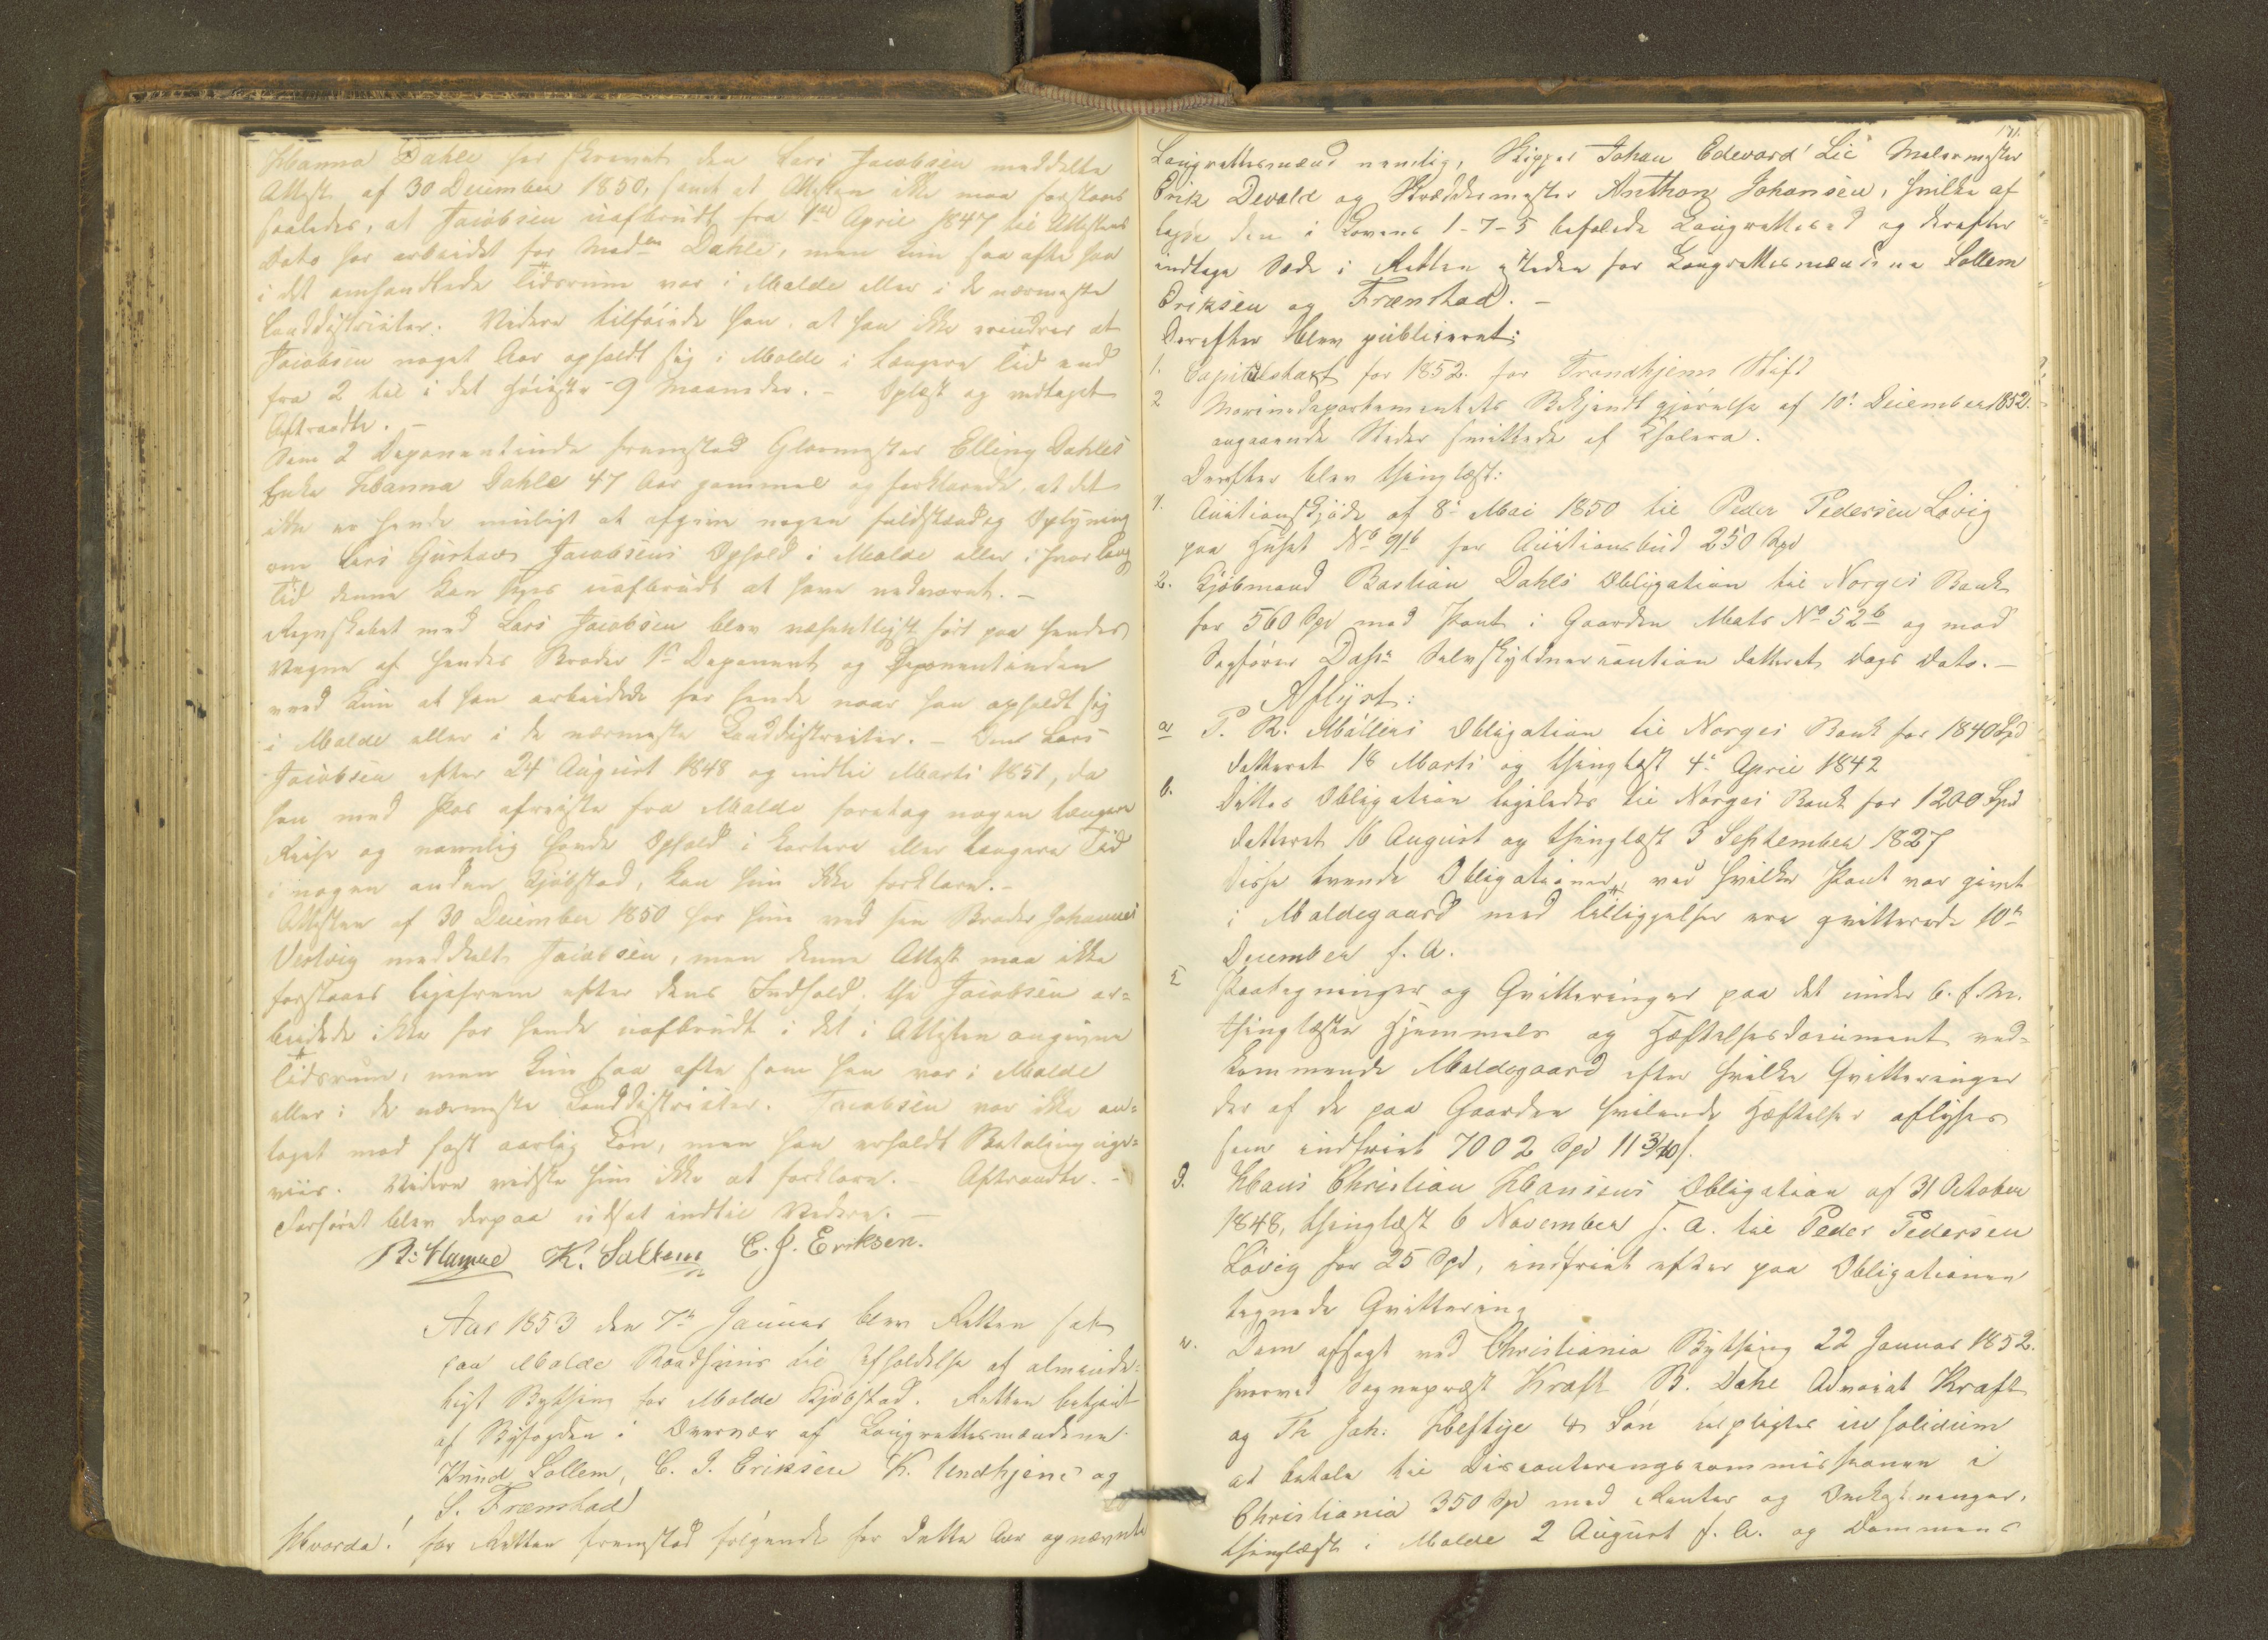 Hanna Dahle har skrevet den Lars Jacobsen meddelte
Attest af 30 December 1850, samt at Attesten ikke maa forstaaes
saaledes, at Jacobsen uafbrudt fra 1ste April 1847 til Attestens
Dato har arbeidet for Madm Dahle, men kun saa ofte han
i det omhandlede Tidsrum var i Molde eller i de nærmeste
Landdistricter. Videre tilføiede han, at han ikke erindrer at
Jacobsen noget Aar opholdt sig i Molde i længere Tid end
fra 2 til i det høieste 9 Maaneder. – Oplæst og vedtaget
Aftraadte. –
Som 2 Deponentinde fremstod Glarmester Elling Dahles
Enke Hanna Dahle 47 Aar gammel og forklarede, at det
ikke er hende muligt at afgive nogen fuldstændig Oplysning
om Lars Gustav Jacobsens Ophold i Molde eller i hvor lang
Tid denne kan siges uafbrudt at have vedvaret. –
Regnskabet med Lars Jacobsen blev væsentligst ført paa hendes
Vegne af hendes Broder 1ste Deponent og Deponentinden
veed kun at han arbeidede for hende naar han opholdt sig
i Molde eller i de nærmeste Landdistricter. – Om Lars
Jacobsen efter 24 August 1848 og indtil Marts 1851, da
han med Pas afreiste fra Molde foretog nogen længere
Reise og navnlig havde Ophold i kortere eller længere Tid
i nogen anden Kjøbstad, kan hun ikke forklare. –
Attesten af 30 December 1850 har hun ved sin Broder Johannes
Vestvig meddelt Jacobsen, men denne Attest maa ikke
forstaaes ligefrem efter dens Indhold, thi Jacobsen ar=
beidede ikke for hende uafbrudt i det i Attesten angivne
Tidsrum, men kun saa ofte som han var i Molde
eller i de nærmeste Landdistricter. Jacobsen var ikke an=
taget mod fast aarlig Løn, men han erholdt Betaling uge=
viis. Videre vidste hun ikke at forklare. – Aftraadte. –
Forhøret blev derpaa udsat indtil Videre. –
K. Sollem C. J. Eriksen.
Aar 1853 den 7de Januar blev Retten sat
paa Molde Raadhuus til Afholdelse af alminde=
ligt Bything for Molde Kjøbstad. Retten betjent
af Byfogden i Overvær af Laugrettesmændene
Knud Sollem, C. J. Eriksen K. Undhjem og
S. Frænstad
Hvorda! for Retten fremstod følgende for dette Aar opnævnte
171.
Laugrettesmænd nemlig, Skipper Johan Edevard Lie Malermester
Erik Devold og Skræddermester Anthon Johansen, hvilke af
lagde den i Lovens 1-7-5 befalede Laugrettesed og derefter
indtoge Sæde i Retten istedenfor Laugrettesmændene Sollem
Eriksen og Frænstad. –
Derefter blev publiceret:
1. Capitelstaxt for 1852 for Trondhjems Stift
2 Marinedepartementets Bekjendtgjørelse af 10de December 1852.
angaaende Steder smittede af Cholera.
Derefter blev thinglæst:
1. Auctionsskjøde af 8de Mai 1850 til Peder Pedersen Løvig
paa Huset No 91b for Auctionsbud 250 Spd
2. Kjøbmand Bastian Dahls Obligation til Norges Bank
for 560 Spd mod Pant i Gaarden Matr No 52b og mod
Sagfører Dahls Selvskyldnercaution datteret Dags Dato. –
Aflyst:
a P. R. Møllers Obligation til Norges Bank for 1840 Spd
datteret 18 Marts og thinglæst 4de April 1842
b. Dittos Obligation ligeledes til Norges Bank for 1200 Spd
datteret 16 August og thinglæst 3 September 1827
Disse tvende Obligationer, ved hvilke Pant var givet
i Moldegaard med Tilliggelser ere qvitterede 10de
December f. A.
c Paategninger og Qvitteringer paa det under 6. f. M.
thinglæste Hjemmels og Hæftelsesdocument ved=
kommende Moldegaard efter hvilke Qvitteringer
der af de paa Gaarden hvilende Hæftelser aflyses
som indfriet 7002 Spd 11 3/10 s.
d. Hans Christian Hansens Obligation af 31 October
1848, thinglæst 6 November s. A. til Peder Pedersen
Løvig for 25 Spd, indfriet efter paa Obligationen
tegnede Qvittering
e. Dom afsagt ved Christiania Bything 22 Januar 1852.
hvorved Sognepræst Kraft B. Dahl Advocat Kraft
og Th Joh: Heftye & Søn tilpligtes in solidum
at betale til Disconteringscommissionen i
Christiania 350 Spd med Renter og Omkostninger,
thinglæst i Molde 2 August f. A. og Dommens